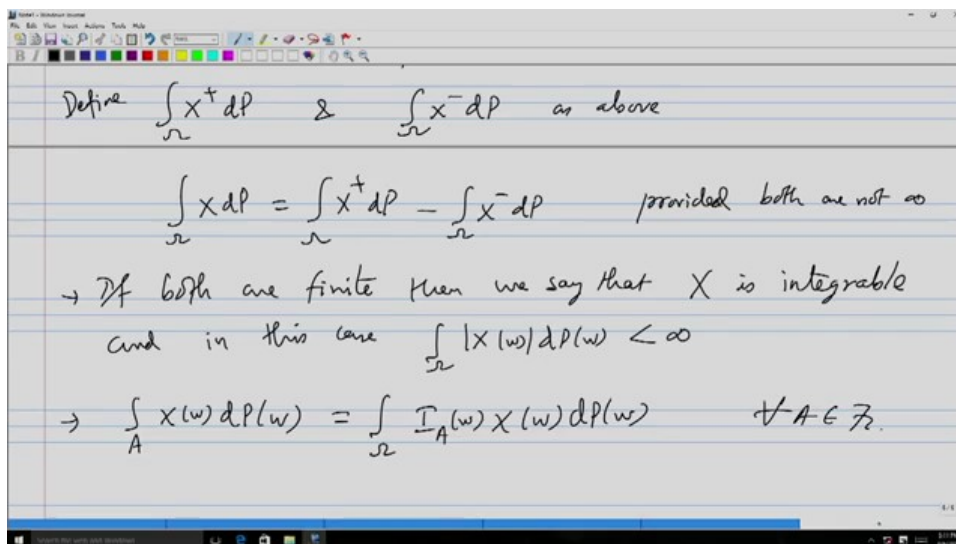 Note1 - Windows Journal
File Edit View Insert Actions Tools Help
B I
Define ∫_Ω X⁺ dP & ∫_Ω X⁻ dP as above
∫_Ω X dP = ∫_Ω X⁺ dP − ∫_Ω X⁻ dP provided both are not ∞
→ If both are finite then we say that X is integrable
and in this case ∫_Ω |X(ω)| dP(ω) < ∞
→ ∫_A X(ω) dP(ω) = ∫_Ω I_A(ω) X(ω) dP(ω) ∀ A ∈ ℱ.
Search the web and Windows